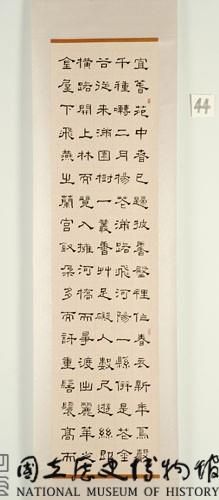 宜春苑中春已歸披香殿裡作春衣新年鳥聲
千種囀二月楊花滿路飛河陽一縣併是花金
谷從來滿園樹一叢香草足礙人數尺遊絲即
橫路開上林而競入擁河橋而爭渡出麗華之
金屋下飛燕之蘭宮釵朵多而訝重髻鬟高而
44
國立歷史博物館
NATIONAL MUSEUM OF HISTORY